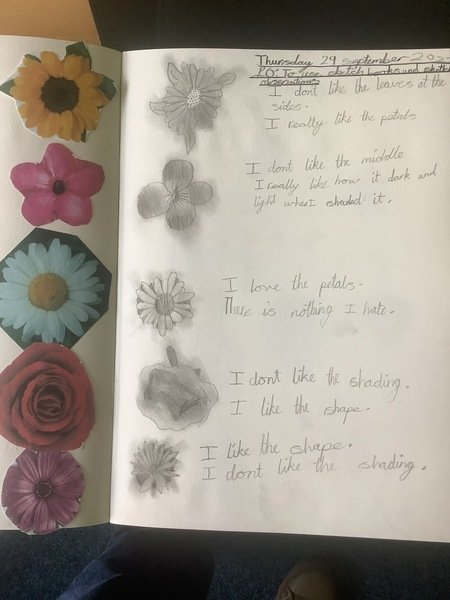 Thursday 29 september 202
LO: To use sketch books and sketch
observations
I dont like the leaves at the
sides.
I really like the petals
I dont like the middle
I really like how it dark and
light when I shaded it.
I love the petals.
There is nothing I hate.
I dont like the shading.
I like the shape.
I like the shape.
I dont like the shading.